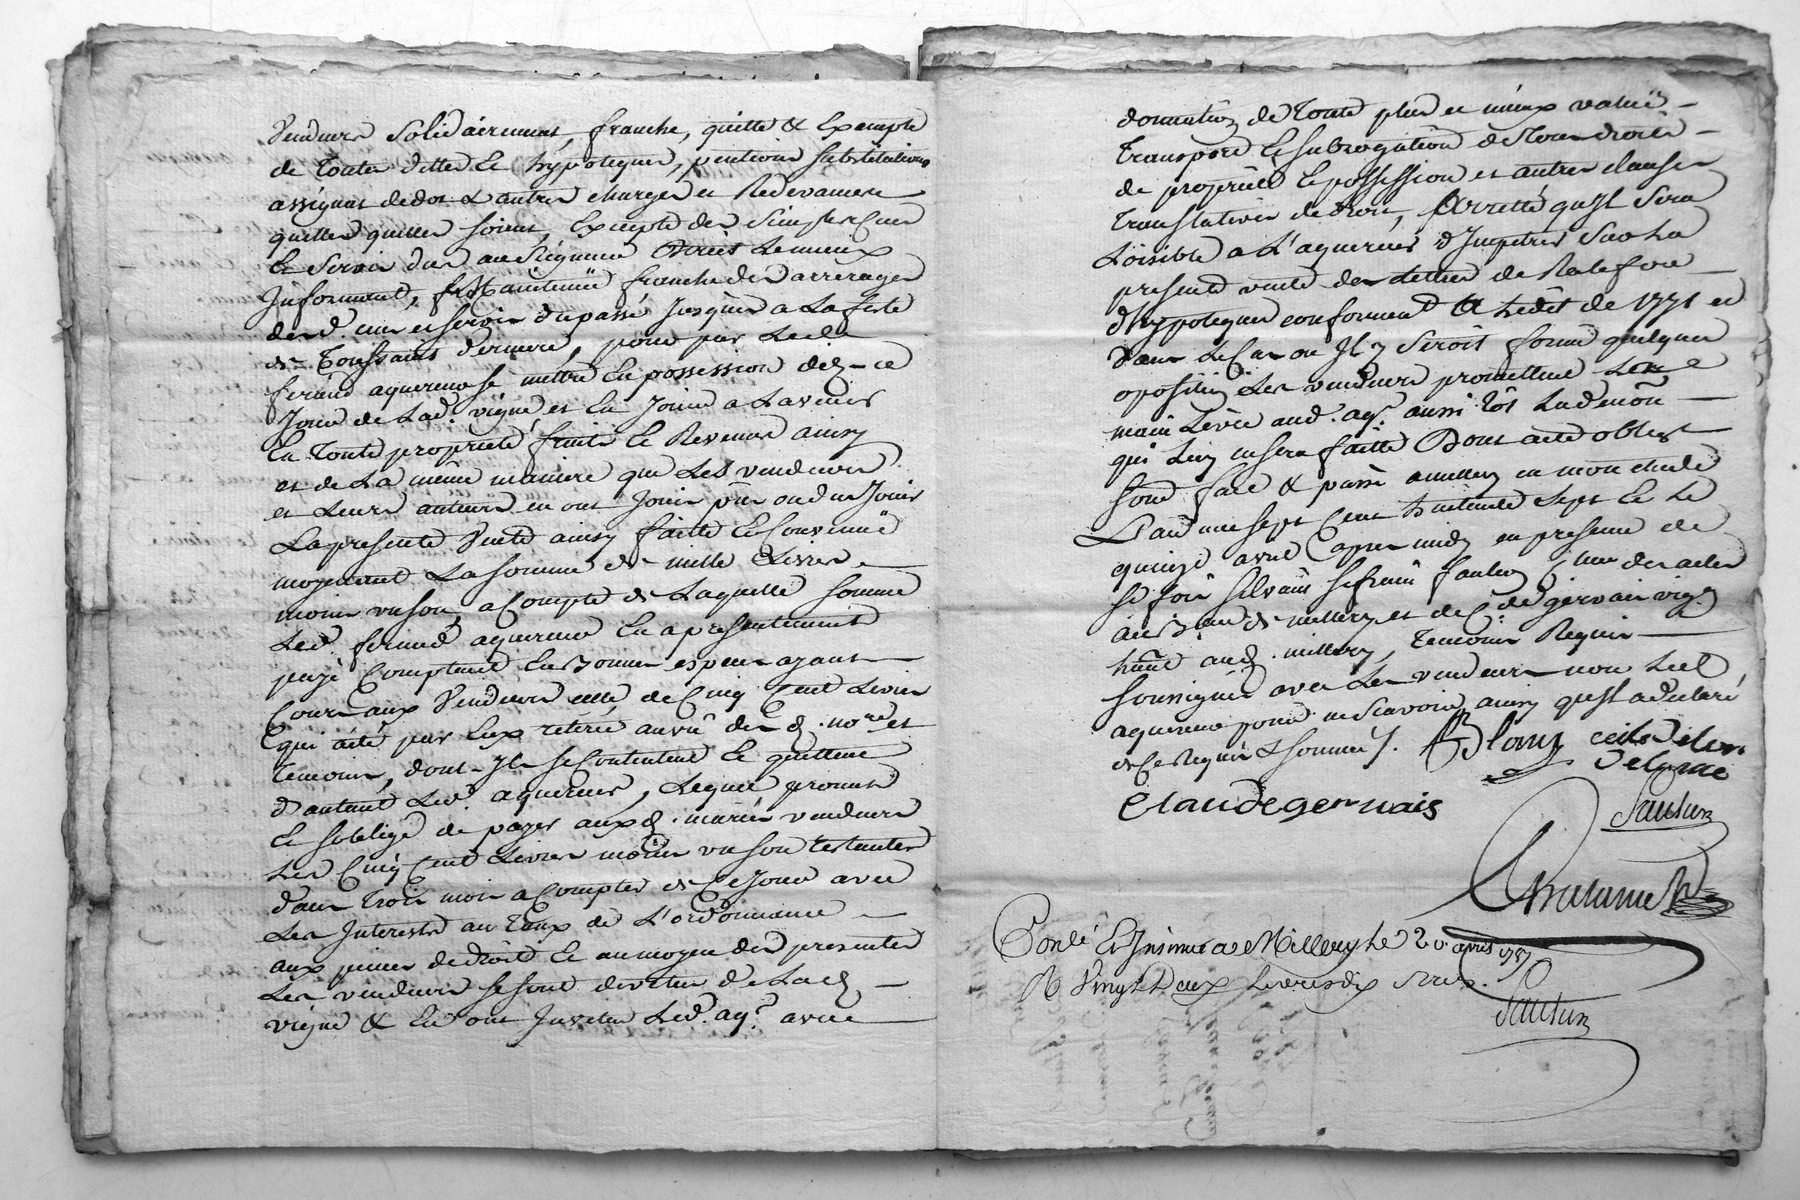 Vendeurs solidairement, franche, quitte & Exempte
de toutes dettes Et hypoteques, pentions substitutions
assignat de dot & autres charges et Redevances
quelles quelles soient, Excepté des simples Cens
Et Servis dus au Seigneur Direct Le mieux
Informant, Et Maintenüe franche des arrerages
des d. cens et servis du passé Jusques a La fete
de Toussaint derniere, pour par Led.
feriaud aquereur se mettre En possession dez-ce
Jour de Lad. vigne, et En Jouir a L'avenir
En toute proprieté fruits Et Revenus ainsy
et de La même maniere que Les vendeurs
et Leurs auteurs en ont Joui pû ou du Jouir
La presente Vente ainsy faitte Et Convenüe
moyenant La somme de mille Livres
moins un sou, a Compte de Laquelle somme
Led. aquereur En a presentement
payé Comptant En bonnes especes ayant
Cours aux Vendeurs celle de Cinq Cent Livres
qui a été par Eux retirée au vû des d. nore et
temoins, dont Ils se Contentent Et quittent
d'autant Led. aquereur, Lequel promet
Et soblige de payer aux d. mariés vendeurs
Les Cinq Cent Livres moins un sou restantes
dans trois mois a Compter de Ce Jour avec
Les Interets au taux de L'ordonnance
aux peines de droit Et au moyen des presentes
Les vendeurs se sont devetus de Lad.
vigne & En ont Investu Led. aqr. avec
donnation de toute plus et mieux valüe
transport Et subrogation de tous droits
de proprieté Et possession et autres clauses
translatives de droit, Arretté qu'Il sera
Loisible a L'aquereur d'Impetrer sur La
presente vente des Lettres de Ratiffon
d'hypoteques conforment. A Ledit de 1771 et
dans Le Cas ou Il y seroit formé quelques
opositions Les vendeurs promettent
main Levée aud. aqr. aussi tot La denōn
qui Luy en sera faitte Dont acte obligt
soumd. fait & passé a millery en mon etude
L'an mil sept Cent huitante sept Et Le
quinze avril apres midy en presence de
sr. jois silvain
au Bau de millery et de Cde gervais vigr.
habt. aud. millery, temoins Requis
soussignés avec Les vendeurs non Led.
aquereur pour ne scavoir ainsy qu'Il a declaré
de Ce Requis & sommé.
Claude gervais
Sautin
Conlé Et Insinué a Millery Le 20 avril 1787
R Vingt Deux Livres dix sols.
Sautin